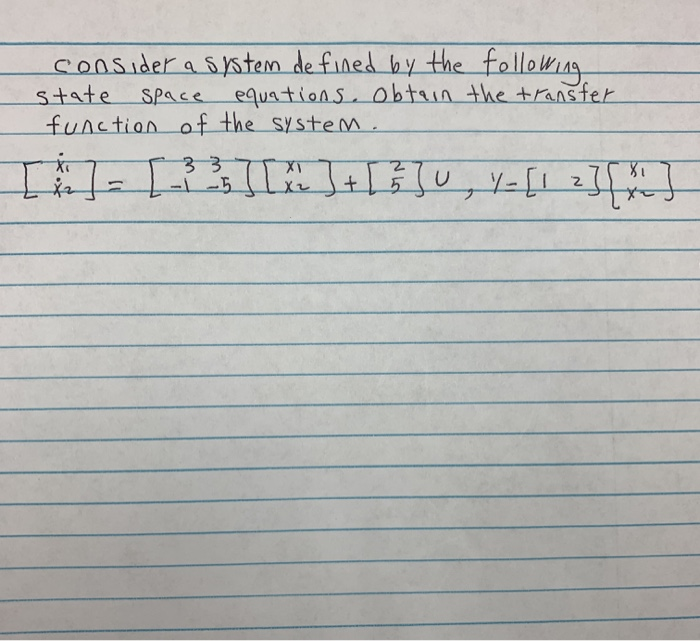 consider a system defined by the following
state space equations. Obtain the transfer
function of the system.
[ẋ1 ẋ2] = [3 3 -1 -5] [x1 x2] + [2 5] U, Y = [1 2] [x1 x2]